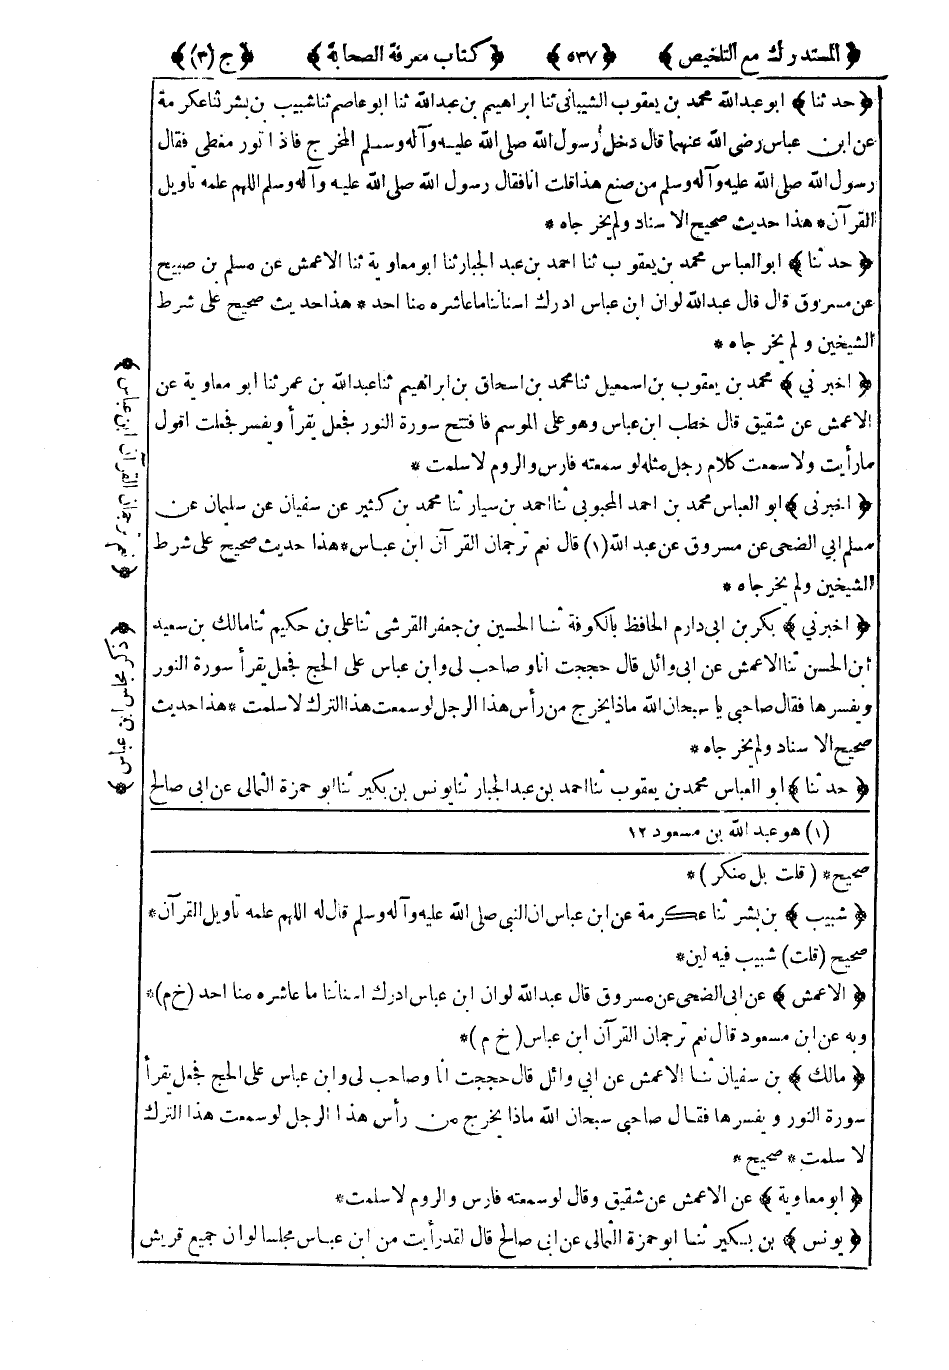 ﴿ المستدرك مع التلخيص ﴾ ﴿ ٥٣٧ ﴾ ﴿ كتاب معرفة الصحابة ﴾ ﴿ ج (٣) ﴾
﴿ حدثنا ﴾ ابو عبدالله محمد بن يعقوب الشيبانى ثنا ابراهيم بن عبدالله ثنا ابو عاصم ثنا شبيب بن بشر ثنا عكرمة
عن ابن عباس رضى الله عنهما قال دخل رسول الله صلى الله عليه وآله وسلم المخرج فاذا تور مغطى فقال
رسول الله صلى الله عليه وآله وسلم من صنع هذا قلت انا فقال رسول الله صلى الله عليه وآله وسلم اللهم علمه تاويل
القرآن * هذا حديث صحيح الاسناد ولم يخرجاه *
﴿ حدثنا ﴾ ابو العباس محمد بن يعقوب ثنا احمد بن عبد الجبار ثنا ابو معاوية ثنا الاعمش عن مسلم بن صبيح
عن مسروق قال قال عبدالله لو ان ابن عباس ادرك اسناننا ما عاشره منا احد * هذا حديث صحيح على شرط
الشيخين ولم يخرجاه *
﴿ اخبرني ﴾ محمد بن يعقوب بن اسمعيل ثنا محمد بن اسحاق بن ابراهيم ثنا عبدالله بن عمر ثنا ابو معاوية عن
الاعمش عن شقيق قال خطب ابن عباس وهو على الموسم فافتتح سورة النور فجعل يقرأ ويفسر فجعلت اقول
ما رأيت ولا سمعت كلام رجل مثله لو سمعته فارس والروم لاسلمت *
﴿ اخبرنى ﴾ ابو العباس محمد بن احمد المحبوبى ثنا احمد بن سيار ثنا محمد بن كثير عن سفيان عن سليمان عن
مسلم ابي الضحى عن مسروق عن عبد الله (١) قال نعم ترجمان القرآن ابن عباس * هذا حديث صحيح على شرط
الشيخين ولم يخرجاه *
﴿ اخبرني ﴾ بكر بن ابى دارم الحافظ بالكوفة ثنا الحسين بن جعفر القرشى ثنا على بن حكيم ثنا مالك بن سعيد
ابن الحسن ثنا الاعمش عن ابى وائل قال حججت انا وصاحب لى وابن عباس على الحج فجعل يقرأ سورة النور
ويفسرها فقال صاحبي يا سبحان الله ماذا يخرج من رأس هذا الرجل لو سمعت هذا الترك لاسلمت * هذا حديث
صحيح الاسناد ولم يخرجاه *
﴿ حدثنا ﴾ ابو العباس محمد بن يعقوب ثنا احمد بن عبد الجبار ثنا يونس بن بكير ثنا ابو حمزة الثمالى عن ابى صالح
(١) هو عبد الله بن مسعود ١٢
صحيح * ( قلت بل منكر ) *
﴿ شبيب ﴾ بن بشر ثنا عكرمة عن ابن عباس ان النبى صلى الله عليه وآله وسلم قال له اللهم علمه تاويل القرآن *
صحيح (قلت) شبيب فيه لين *
﴿ الاعمش ﴾ عن ابى الضحى عن مسروق قال عبدالله لو ان ابن عباس ادرك اسناننا ما عاشره منا احد (خ م) *
وبه عن ابن مسعود قال نعم ترجمان القرآن ابن عباس ( خ م ) *
﴿ مالك ﴾ بن سفيان ثنا الاعمش عن ابي وائل قال حججت انا وصاحب لى وابن عباس على الحج فجعل يقرأ
سورة النور ويفسرها فقال صاحبي سبحان الله ماذا يخرج من رأس هذا الرجل لو سمعت هذا الترك
لاسلمت * صحيح *
﴿ ابو معاوية ﴾ عن الاعمش عن شقيق وقال لو سمعته فارس والروم لاسلمت *
﴿ يونس ﴾ بن بكير ثنا ابو حمزة الثمالى عن ابى صالح قال لقد رأيت من ابن عباس مجلسا لو ان جميع قريش
﴿ نعم ترجمان القرآن ابن عباس ﴾
﴿ ذكر مجلس ابن عباس ﴾